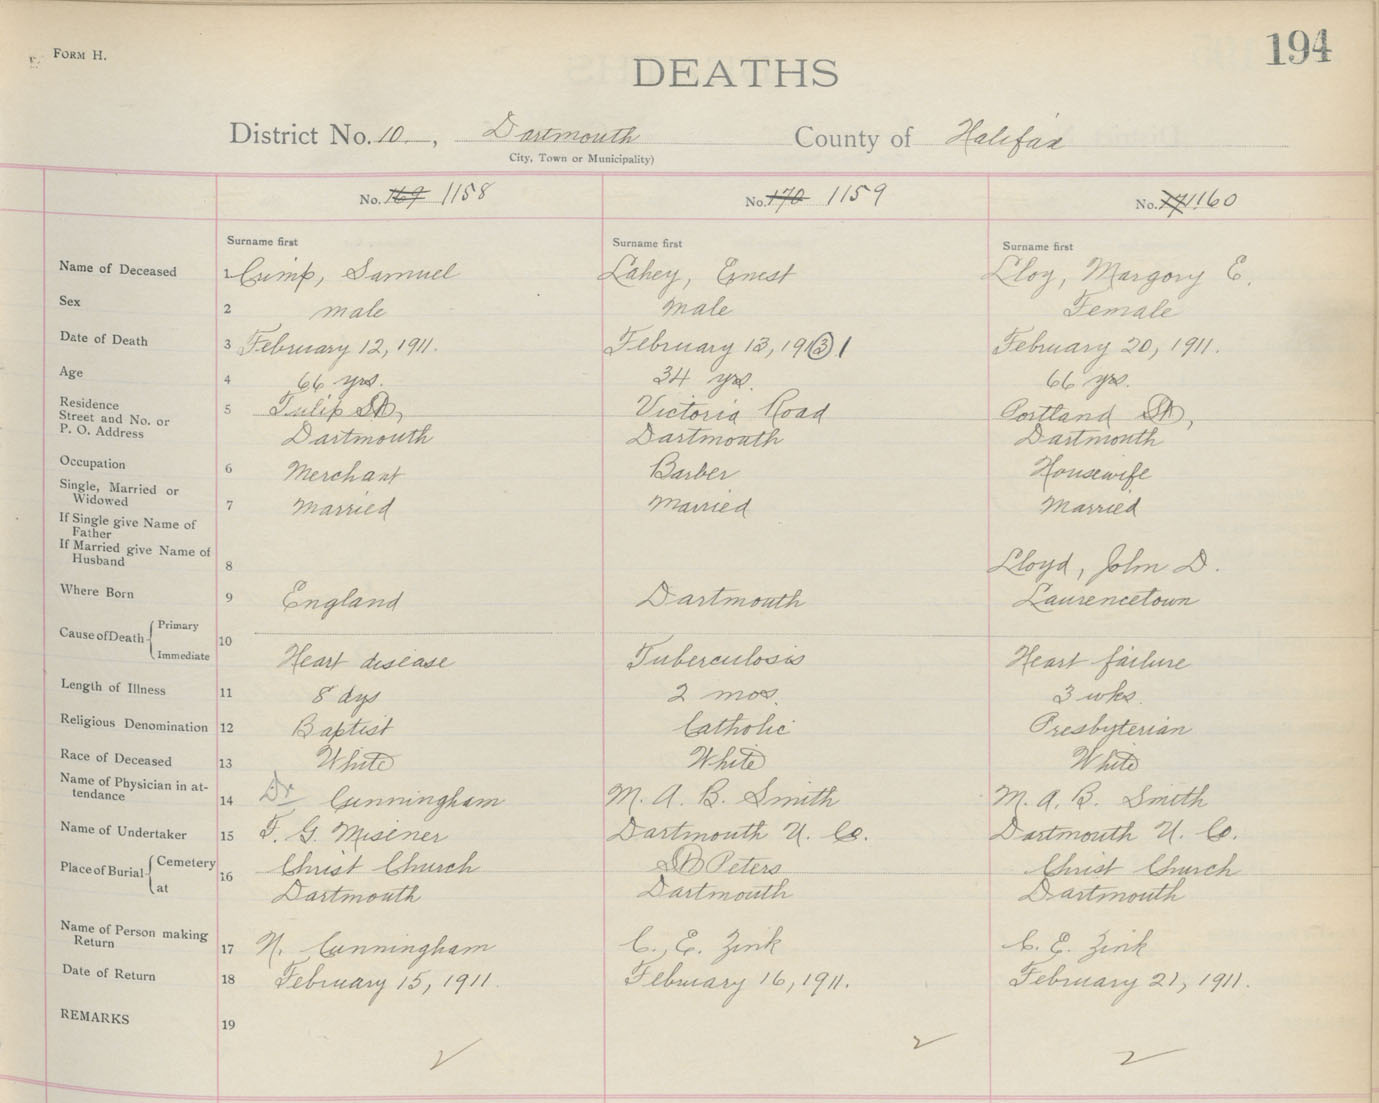 FORM H.
194
DEATHS
District No. 10, Dartmouth County of Halifax
City, Town or Municipality)
No. 169 1158 No. 170 1159 No. 171 1160
Surname first Surname first Surname first
Name of Deceased 1 Crimp, Samuel Lahey, Ernest Lloy, Margory E.
Sex 2 male Male Female
Date of Death 3 February 12, 1911. February 13, 1913 1 February 20, 1911.
Age 4 66 yrs. 34 yrs. 66 yrs.
Residence
Street and No. or 5 Tulip St, Victoria Road Portland St,
P. O. Address Dartmouth Dartmouth Dartmouth
Occupation 6 Merchant Barber Housewife
Single, Married or
Widowed 7 Married Married Married
If Single give Name of
Father
If Married give Name of
Husband 8 Lloyd, John D.
Where Born 9 England Dartmouth Laurencetown
Cause of Death Primary
10
Immediate Heart disease Tuberculosis Heart failure
Length of Illness 11 8 dys 2 mos. 3 wks.
Religious Denomination 12 Baptist Catholic Presbyterian
Race of Deceased 13 White White White
Name of Physician in at-
tendance 14 Dr Cunningham M. A. B. Smith M. A. B. Smith
Name of Undertaker 15 F. G. Misener Dartmouth U. Co. Dartmouth U. Co.
Place of Burial Cemetery 16 Christ Church St Peters Christ Church
at Dartmouth Dartmouth Dartmouth
Name of Person making
Return 17 N. Cunningham C. E. Zink C. E. Zink
Date of Return 18 February 15, 1911. February 16, 1911. February 21, 1911.
REMARKS 19